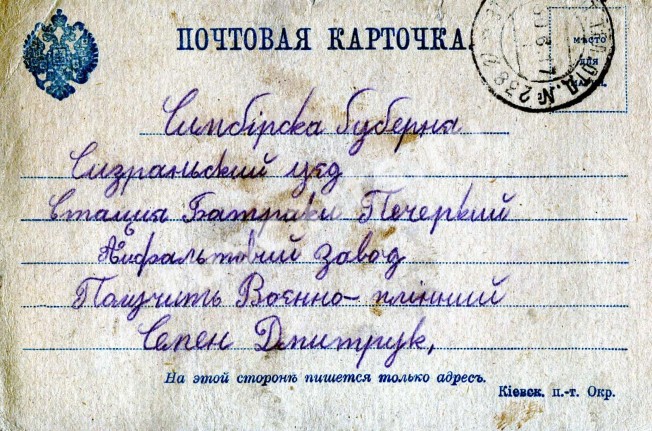 ПОЧТОВАЯ КАРТОЧКА
мѣсто
для
Симбірска Губерна
Сизраньский уєд
Станция Батраки Печеркий
Асфальтовий завод
Получить Воєнно-плінний
Семен Дмитрук,
На этой сторонѣ пишется только адресъ.
Кіевск. п.-т. Окр.